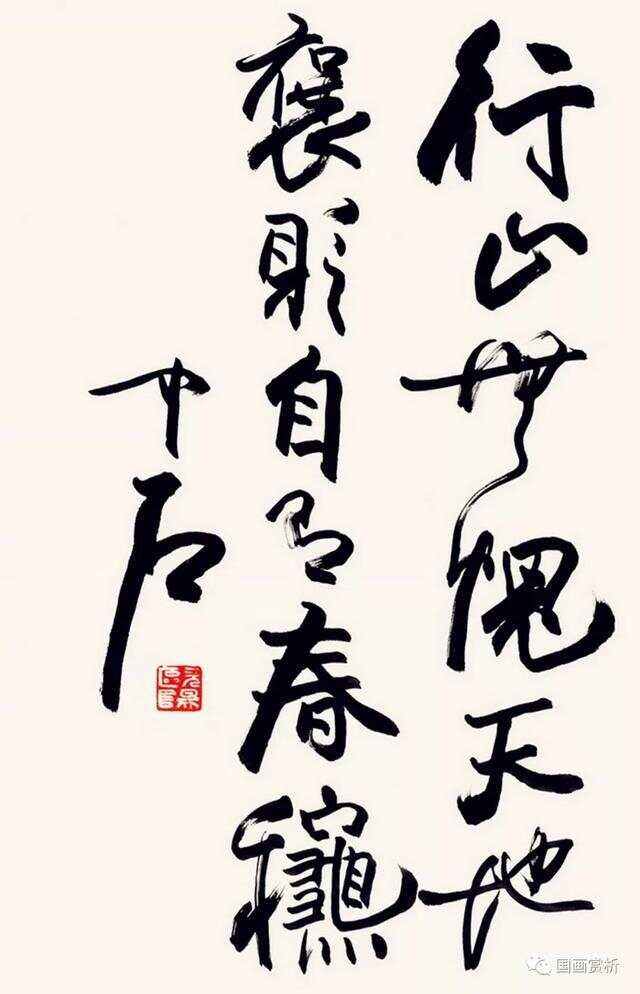 行止無愧天地
褒貶自有春龝
中石
国画赏析